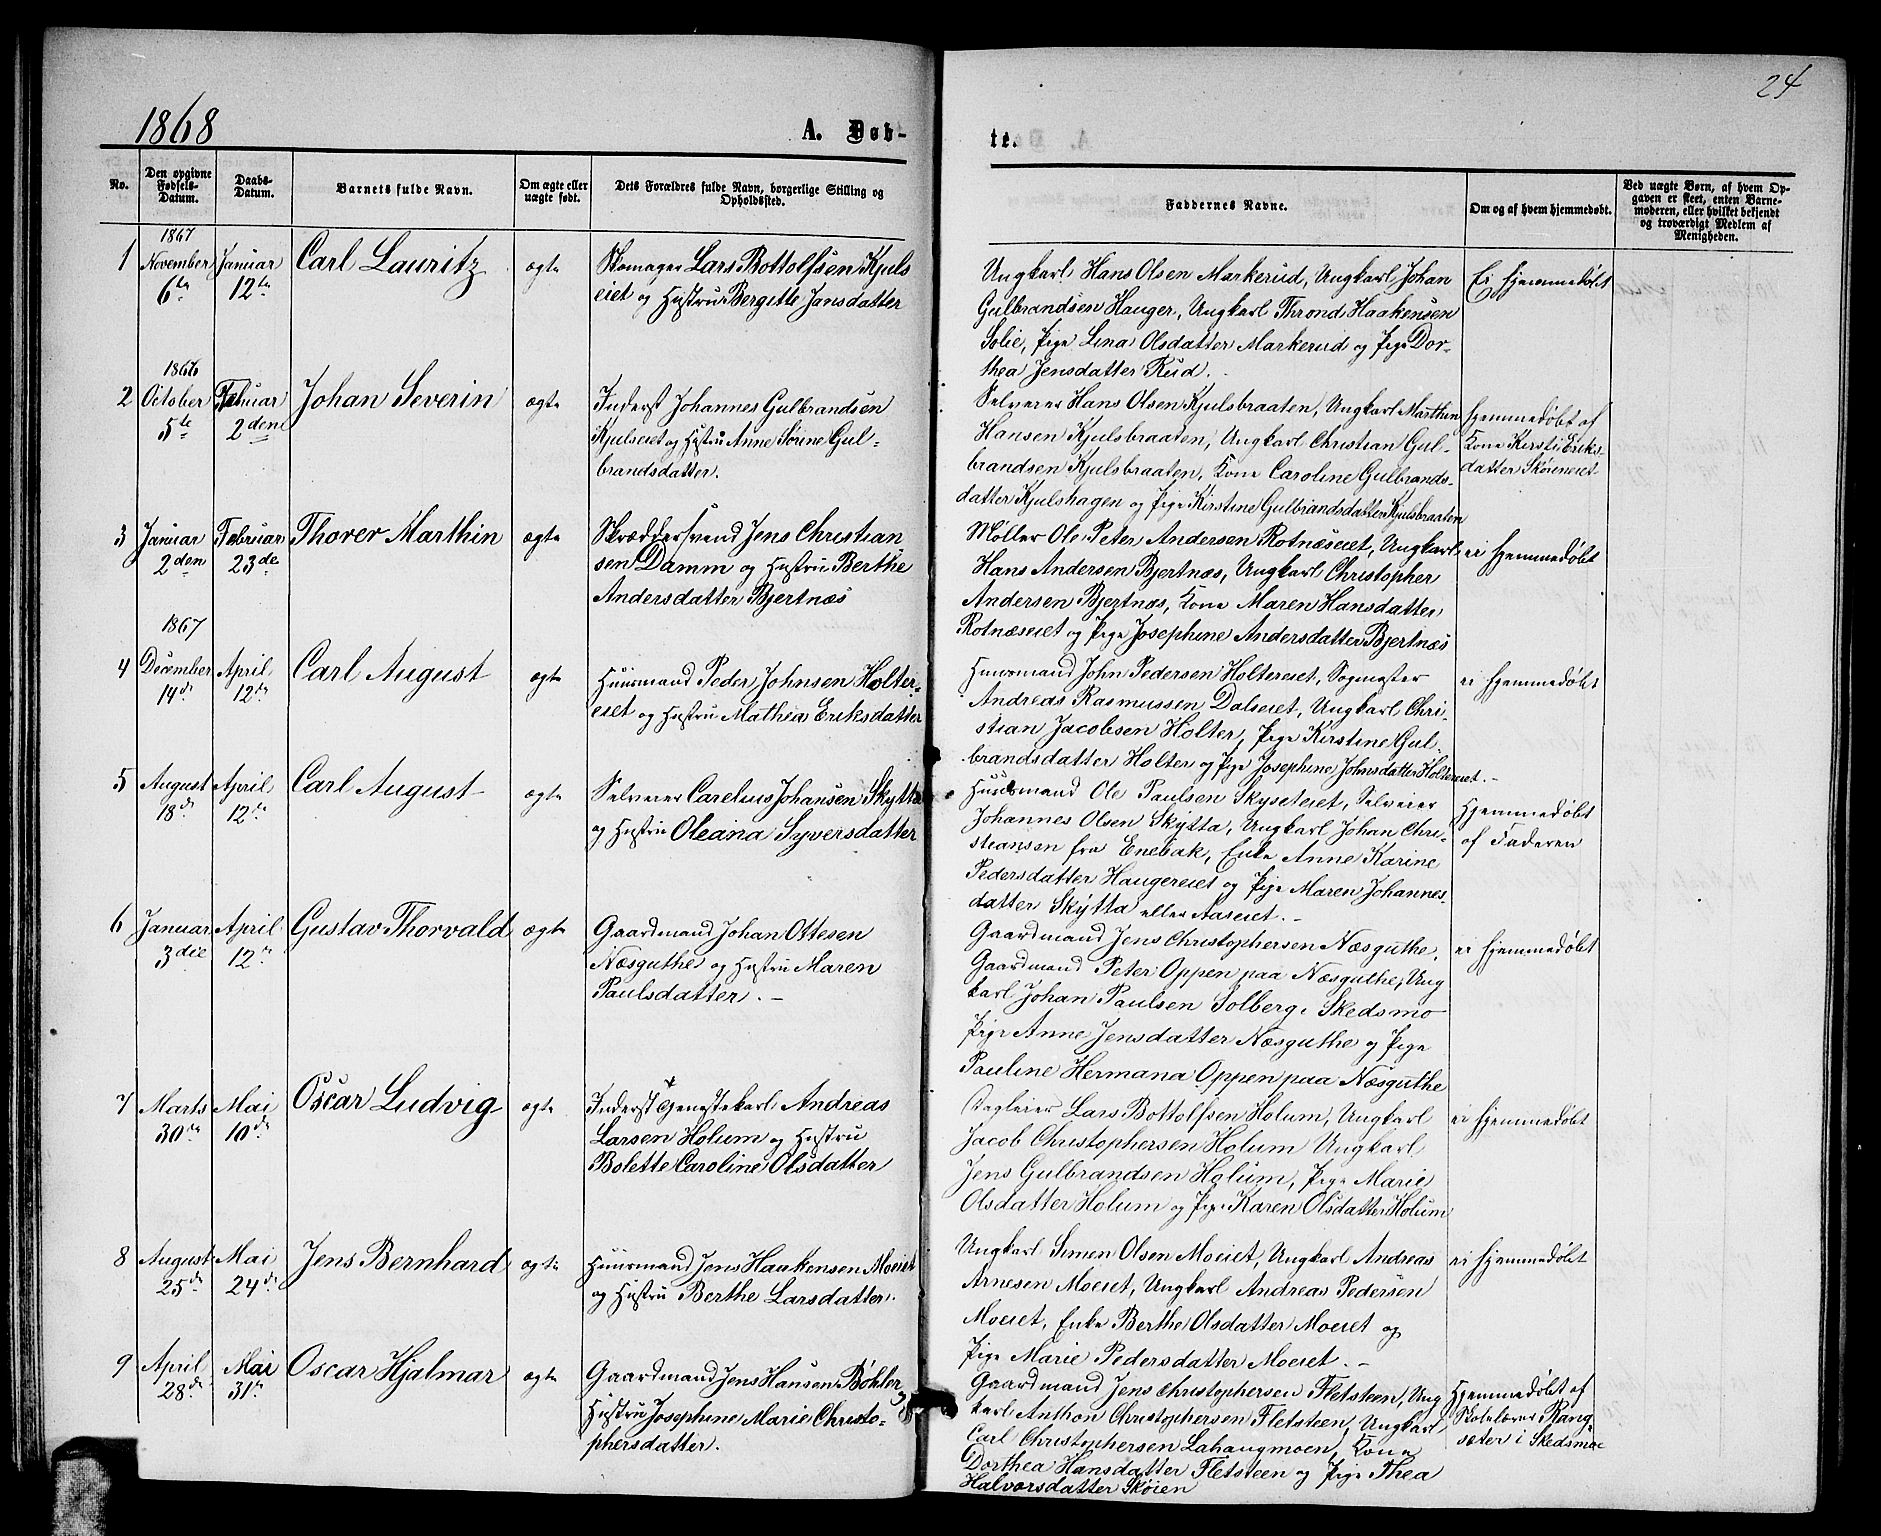 24
1868
A. Døb-
te.
No.
Den opgivne Fødsels-Datum.
Daabs-Datum.
Barnets fulde Navn.
Om ægte eller uægte født.
Dets Forældres fulde Navn, borgerlige Stilling og Opholdssted.
Faddernes Navne.
Om og af hvem hjemmedøbt.
Ved uægte Børn, af hvem Opgaven er skeet, enten Barnemoderen, eller hvilket bekjendt og troværdigt Medlem af Menigheden.
1
1867
November
6te
Januar
12te
Carl Lauritz
ægte
Skomager Lars Bottolfsen Kjuls
eiet og Hustru Bergitte Jansdatter
Ungkarl Hans Olsen Markerud, Ungkarl Johan
Gulbrandsen Hauger, Ungkarl Thrond Haakensen
Solie, Pige Lina Olsdatter Markerud og Pige Dor-
thea Jensdatter Rud.
Ei hjemmedøbt
2
1866
October
5te
Februar
2den
Johan Severin
ægte
Inderst Johannes Gulbrandsen
Kjulseiet og Hustru Anne Sørine Gul-
brandsdatter.
Selveier Hans Olsen Kjulsbraaten, Ungkarl Marthin
Hansen Kjulsbraaten, Ungkarl Christian Gul-
brandsen Kjulsbraaten, Kone Caroline Gulbrands-
datter Kjulshagen og Pige Kirstine Gulbrandsdatter Kjulsbraaten
Hjemmedøbt af
Kone Kirsti Eriks-
datter Skøieneiet
3
Januar
2den
Februar
23de
Thorer Marthin
ægte
Skræddersvend Jens Christian
sen Damm og Hustru Berthe
Andersdatter Bjertnæs
Møller Ole Peter Andersen Rotnæseiet, Ungkarl
Hans Andersen Bjertnæs, Ungkarl Christopher
Andersen Bjertnæs, Kone Maren Hansdatter
Rotnæseiet og Pige Josephine Andersdatter Bjertnæs
ei hjemmedøbt
4
1867
December
14de
April
12te
Carl August
ægte
Huusmand Peder Johnsen Holter-
eiet og Hustru Mathea Eriksdatter
Huusmand John Pedersen Holtereiet, Sogmester
Andreas Rasmussen Dalseiet, Ungkarl Chri-
stian Jacobsen Holter, Pige Kirstine Gul-
brandsdatter Holter og Pige Josephine Johnsdatter Holtereiet.-
ei hjemmedøbt
5
August
18de
April
12te
Carl August
ægte
Selveier Carelius Johansen Skytta
og Hustru Oleana Syversdatter
Huusmand Ole Paulsen Skyseteiet, Selveier
Johannes Olsen Skÿtta, Ungkarl Johan Chri-
stiansen fra Enebak, Enke Anne Karine
Pedersdatter Haugereiet og Pige Maren Johannes-
datter Skÿtta eller Aaseiet.-
Hjemmedøbt
af Faderen
6
Januar
3die
April
12te
Gustav Thorvald
ægte
Gaardmand Johan Ottesen
Næsguthe og Hustru Maren
Paulsdatter.-
Gaardmand Jens Christophersen Næsguthe,
Gaardmand Peter Oppen paa Næsguthe, Ung
karl Johan Paulsen Solberg i Skedsmo
Pige Anne Jensdatter Næsguthe og Pige
Pauline Hermana Oppen paa Næsguthe
ei hjemmedøbt
7
Marts
30te
Mai
10de
Oscar Ludvig
ægte
Inderst & Tjenestekarl Andreas
Larsen Holum og Hustru
Bolette Caroline Olsdatter
Lars Bottolfsen Holum, Ungkarl
Jacob Christophersen Holum Ungkarl
Jens Gulbrandsen Holum, Pige Marie
Olsdatter Holum og Pige Karen Olsdatter Holum
ei hjemmedøbt
8
August
25de
Mai
24de
Jens Bernhard
ægte
Huusmand Jens Haakensen Moeiet
og Hustru Berthe Larsdatter.
Ungkarl Simen Olsen Moeiet, Ungkarl Andreas
Arnesen Moeiet, Ungkarl Andreas Pedersen
Moeiet, Enke Berthe Olsdatter Moeiet og
Pige Marie Pedersdatter Moeiet.-
ei hjemmedøbt
9
April
28de
Mai
31te
Oscar Hjalmar
ægte
Gaardmand Jens Hansen Bøhler og
Hustru Josephine Marie Christo-
phersdatter.
Gaardmand Jens Christophersen Fletsteen, Ung
karl Anthon Christophersen Fletsteen, Ungkarl
Carl Christophersen Lahaugmoen, Kone
Dorthea Hansdatter Fletsteen og Pige Thea
Halvorsdatter Skøien
Hjemmedøbt af
Skolelærer Rang-
sæter i Skedsmoe